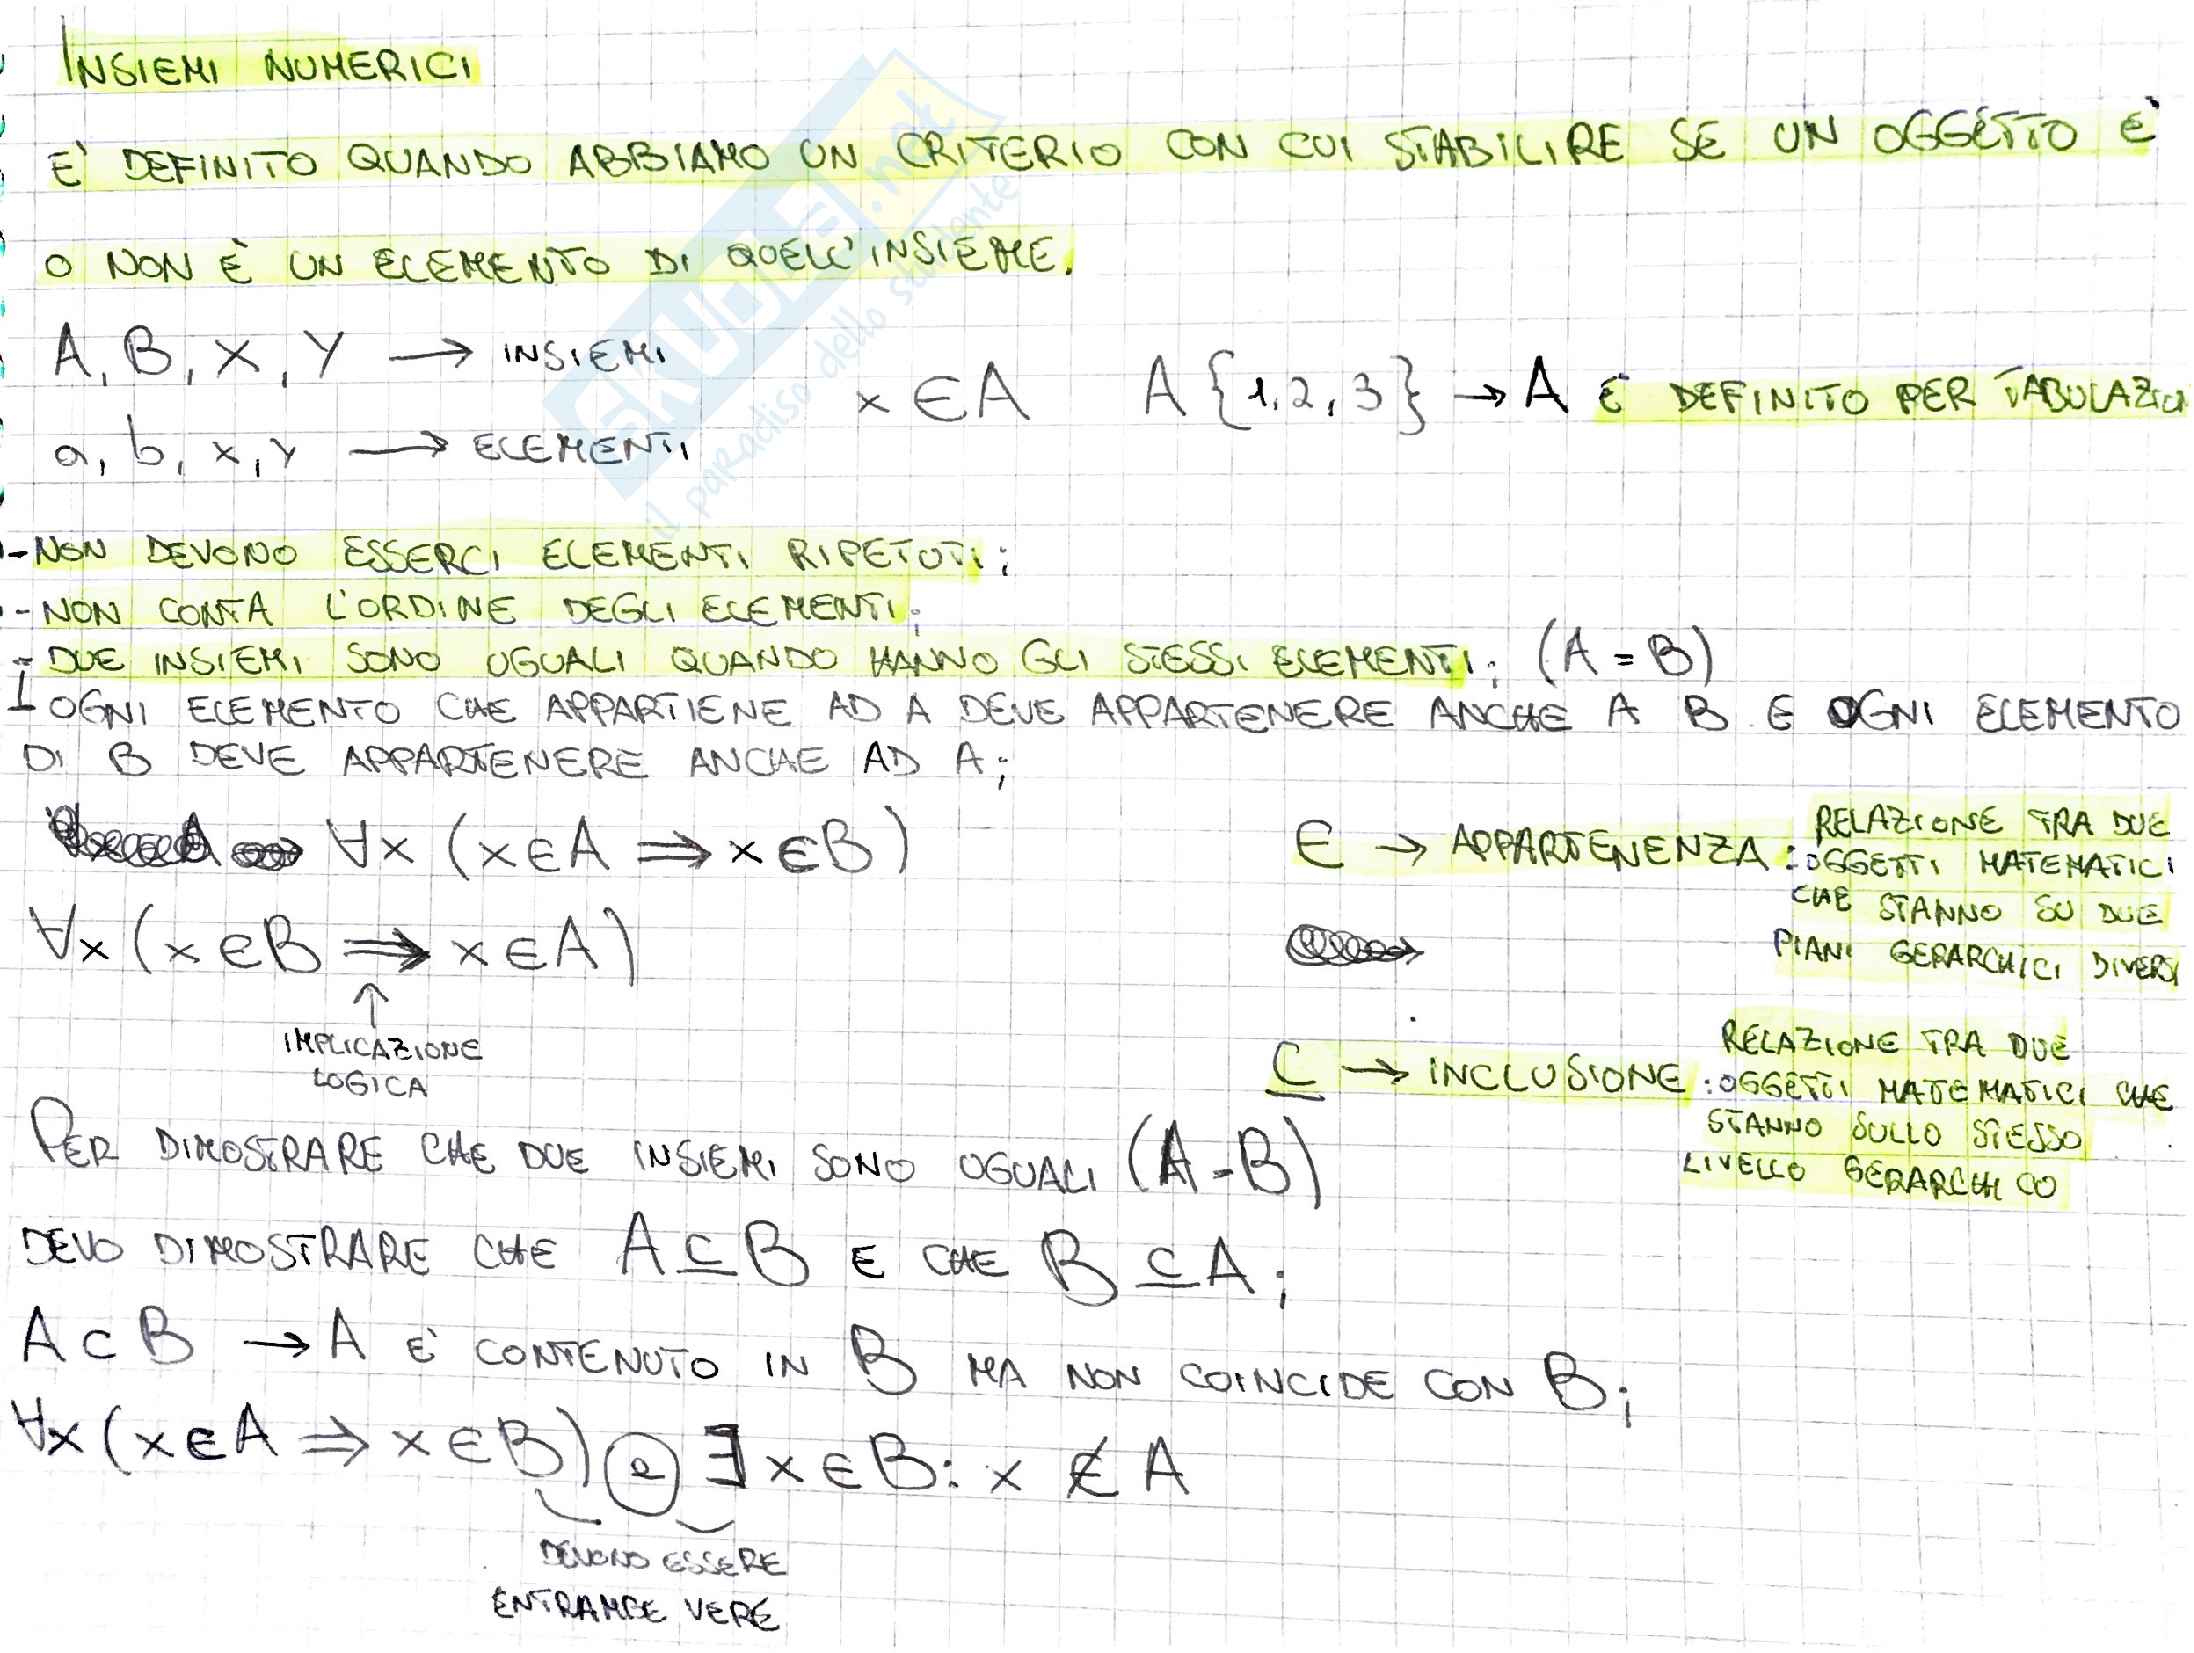 INSIEMI NUMERICI
E' DEFINITO QUANDO ABBIAMO UN CRITERIO CON CUI STABILIRE SE UN OGGETTO È
O NON È UN ELEMENTO DI QUELL'INSIEME.
A, B, X, Y → INSIEMI
x ∈ A A {1, 2, 3} → A È DEFINITO PER TABULAZIO
a, b, x, y → ELEMENTI
- NON DEVONO ESSERCI ELEMENTI RIPETUTI;
- NON CONTA L'ORDINE DEGLI ELEMENTI;
- DUE INSIEMI SONO UGUALI QUANDO HANNO GLI STESSI ELEMENTI; (A = B)
OGNI ELEMENTO CHE APPARTIENE AD A DEVE APPARTENERE ANCHE A B E OGNI ELEMENTO
DI B DEVE APPARTENERE ANCHE AD A;
∀x (x ∈ A ⇒ x ∈ B)
∀x (x ∈ B ⇒ x ∈ A)
↑
IMPLICAZIONE
LOGICA
∈ → APPARTENENZA: RELAZIONE TRA DUE
OGGETTI MATEMATICI
CHE STANNO SU DUE
PIANI GERARCHICI DIVERSI
⊆ → INCLUSIONE: RELAZIONE TRA DUE
OGGETTI MATEMATICI CHE
STANNO SULLO STESSO
LIVELLO GERARCHICO
PER DIMOSTRARE CHE DUE INSIEMI SONO UGUALI (A = B)
DEVO DIMOSTRARE CHE A ⊆ B E CHE B ⊆ A;
A ⊂ B → A E' CONTENUTO IN B MA NON COINCIDE CON B;
∀x (x ∈ A ⇒ x ∈ B) e ∃ x ∈ B: x ∉ A
DEVONO ESSERE
ENTRAMBE VERE
SKUOLA.net
il paradiso dello studente